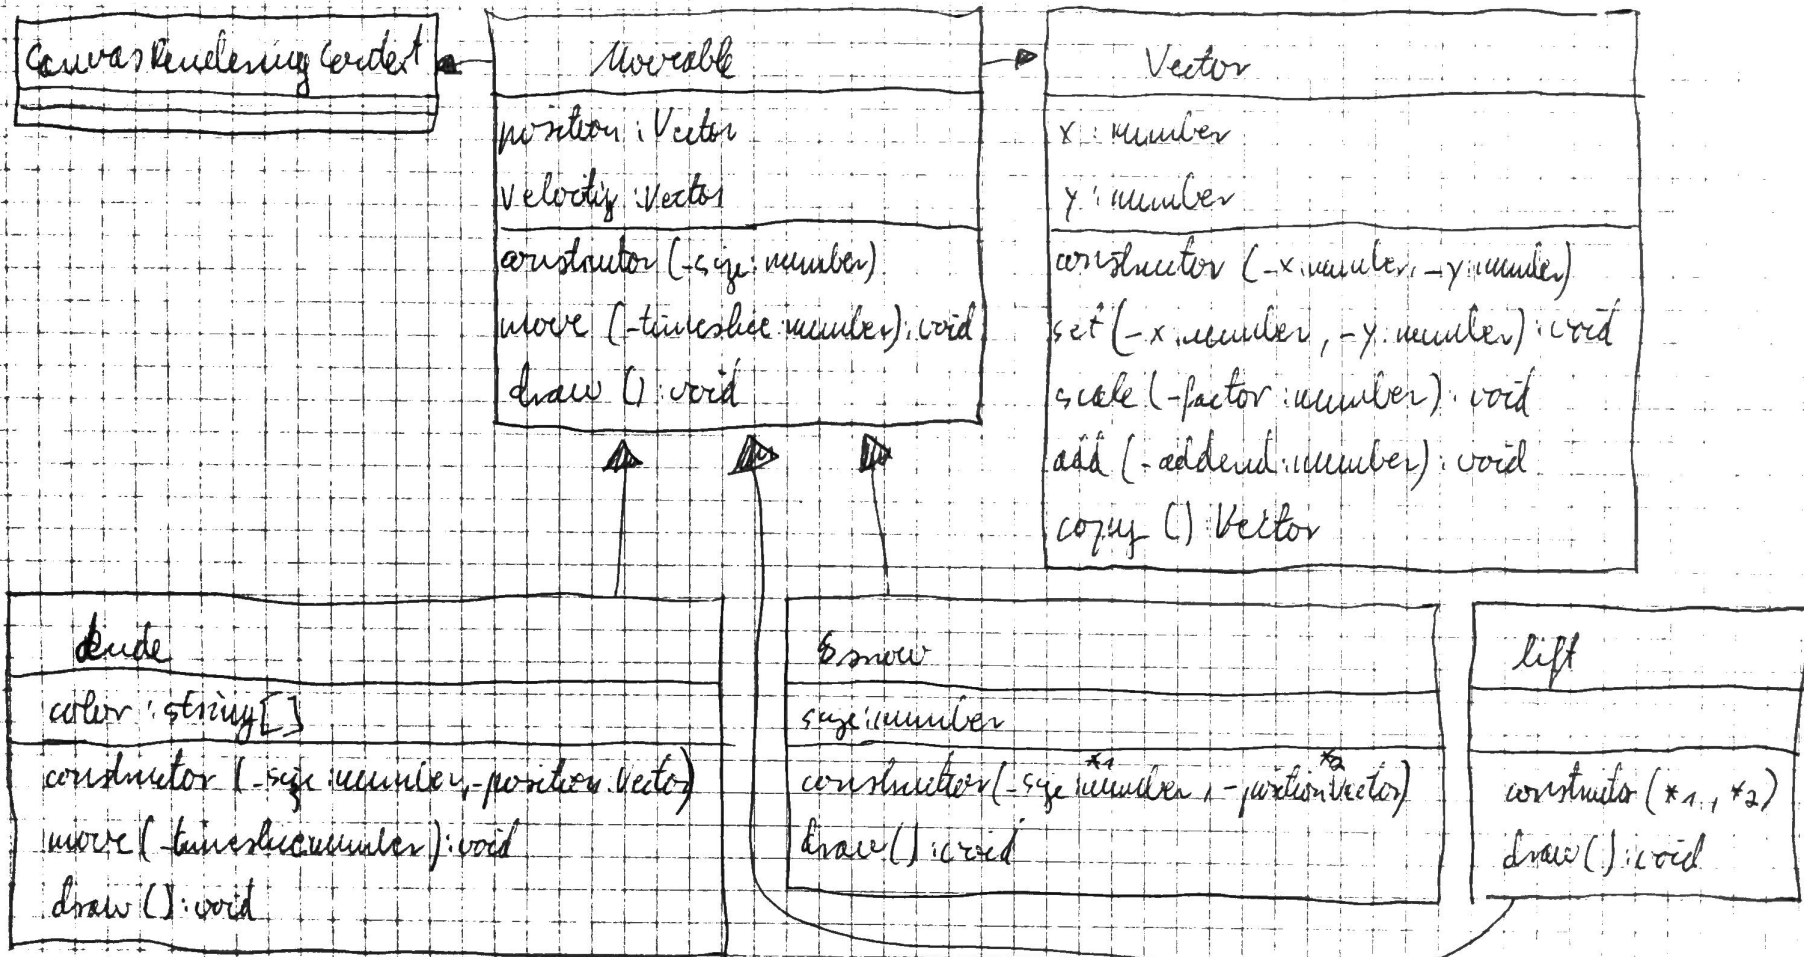 CanvasRenderingContext
Moveable
position : Vector
velocity : Vector
constructor (_size : number)
move (_timeslice : number) : void
draw () : void
Vector
x : number
y : number
constructor (_x : number, _y : number)
set (_x : number, _y : number) : void
scale (_factor : number) : void
add (_addend : number) : void
copy () : Vector
dude
color : string[]
constructor (_size : number, _position : Vector)
move (_timeslice : number) : void
draw () : void
snow
size : number
*1 *2
constructor (_size : number, _position : Vector)
draw () : void
lift
constructor (*1, *2)
draw () : void